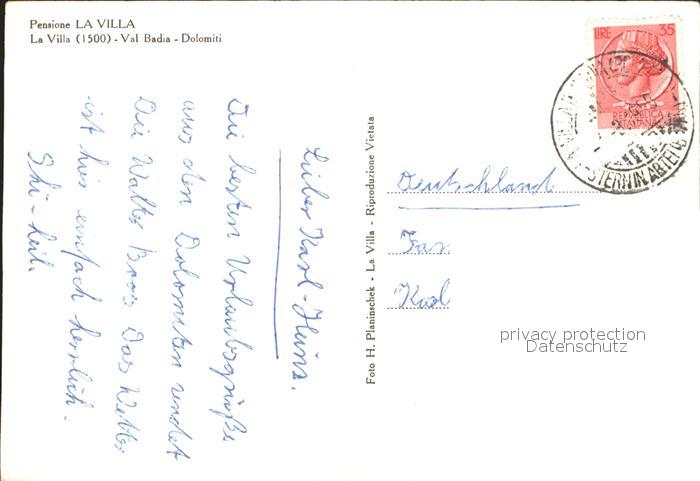 Pensione LA VILLA
La Villa (1500) - Val Badia - Dolomiti
Lieber Karl-Heinz.
Die besten Urlaubsgrüße
aus den Dolomiten sendet
Die Walter Das Wetter
ist hier einfach herrlich.
Ski-heil.
Foto H. Planinschek - La Villa - Riproduzione Vietata
LIRE 35
REPUBBLICA
ITALIANA
STERN IN ABTEI
Deutschland
Karl
privacy protection
Datenschutz